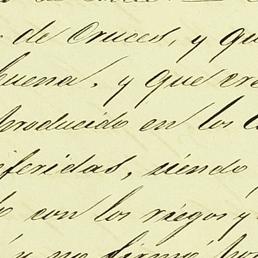 de Cruces, y qu
buena, y que cre
producido en los
feridas, siendo
con los riegos y
y no firmó